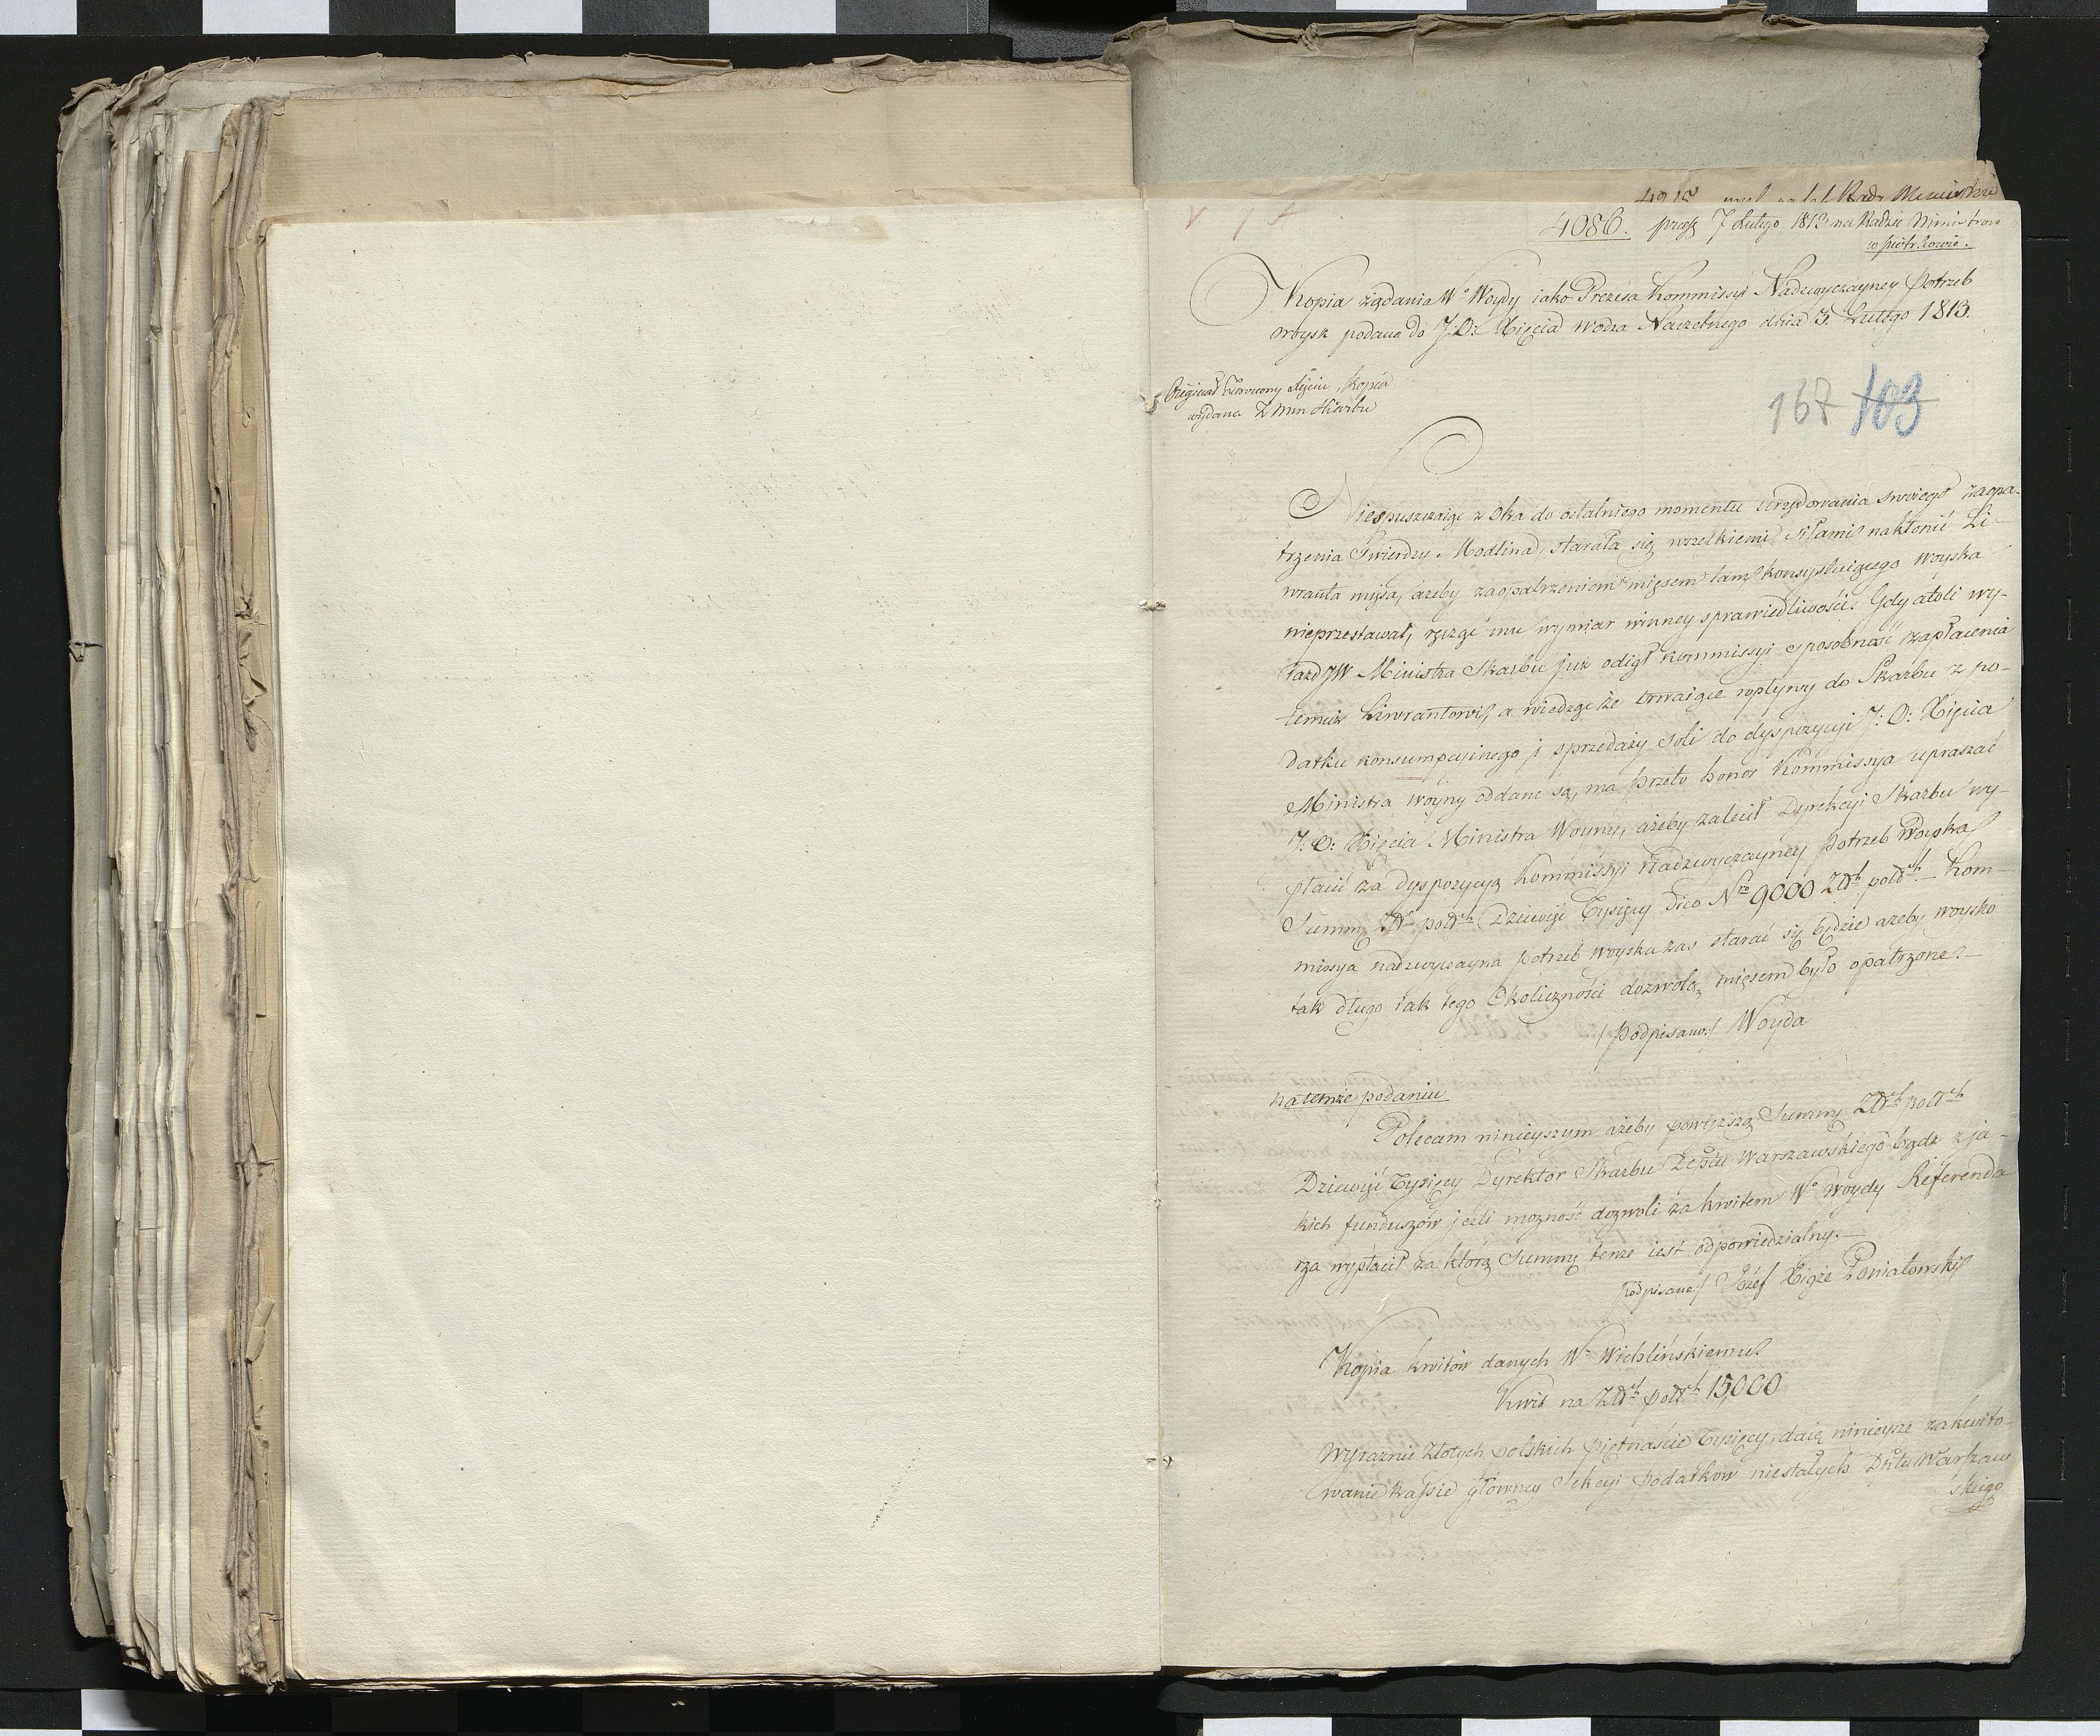 4086. prez 7 Lutego 1813 na Radzie Ministrow
w Piotrkowie.
Kopia żądania Wo Woydy iako Prezesa Kommissyi Nadzwyczayney Potrzeb
woysk podana do J: O: Xięcia Wodza Naczelnego dnia 3. Lutego 1813.
Orginał zwrócony Xięciu, Kopia
wydana z Min Skarbu
167 103
Niespuszczaiąc z oka do ostatniego momentu urzędowania swoiego zaopa-
trzenia Twierdzy Modlina, starała się wszelkiemi siłami nakłonić Li-
wranta mięsa, ażeby zaopatrzeniem mięsem tam konsystuiącego woyska
nieprzestawał, ręcząc mu wymiar winney sprawiedliwości. Gdy atoli wy-
iazd JW Ministra Skarbu już odiął Kommissyi sposobność zapłacenia
temuż Liwrantowi, a wiedząc że trwaiące wpływy do Skarbu z po-
datku konsumpcyinego i sprzedaży soli do dyspozycyi J: O: Xięcia
Ministra Woyny oddane są, ma przeto honor Kommissya upraszać
J: O: Xięcia Ministra Woyny, ażeby zalecił Dyrekcyi Skarbu wy-
płacić za dyspozycyą Kommissyi Nadzwyczayney Potrzeb Woyska
Summę Złch polch Dziewięć Tysięcy dico Nro 9000 Złch polch – Kom-
missya nadzwyczayna potrzeb woyska zas starać się będzie ażeby woysko
tak długo iak tego okoliczności dozwolą mięsem było opatrzone. –
/podpisano:/ Woyda
na temże podaniu
Polecam ninieyszym ażeby powyższą Summę Złch polch
Dziewięć Tysięcy Dyrektor Skarbu Deptu Warszawskiego bądz z ja-
kich funduszów jeżli możność dozwoli za kwitem Wo Woydy Referenda
rza wypłacił za którą Summę tenże iest odpowiedzialny. –
podpisano:/ Józef Xiąże Poniatowski
Kopia kwitów danych Wu Wichlińskiemu
Kwit na Złch polch 15,000
Wyraznie Złotych polskich piętnaście Tysięcy, daię ninieysze zakwito-
wanie kassie główney Sekcyi podatków niestałych Dptu Warszaw
skiego